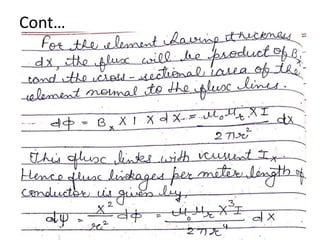 Cont…
For the element having thickness =
dx, the flux will be product of Bx
and the cross-sectional area of the
element normal to the flux lines.
dφ = Bx X 1 X dx = μ0 μr X I / 2πr² dx
This flux links with current Ix.
Hence flux linkages per meter length of
conductor is given by,
dψ = x²/r² dφ = μ0 μr X³ I / 2πr⁴ dx